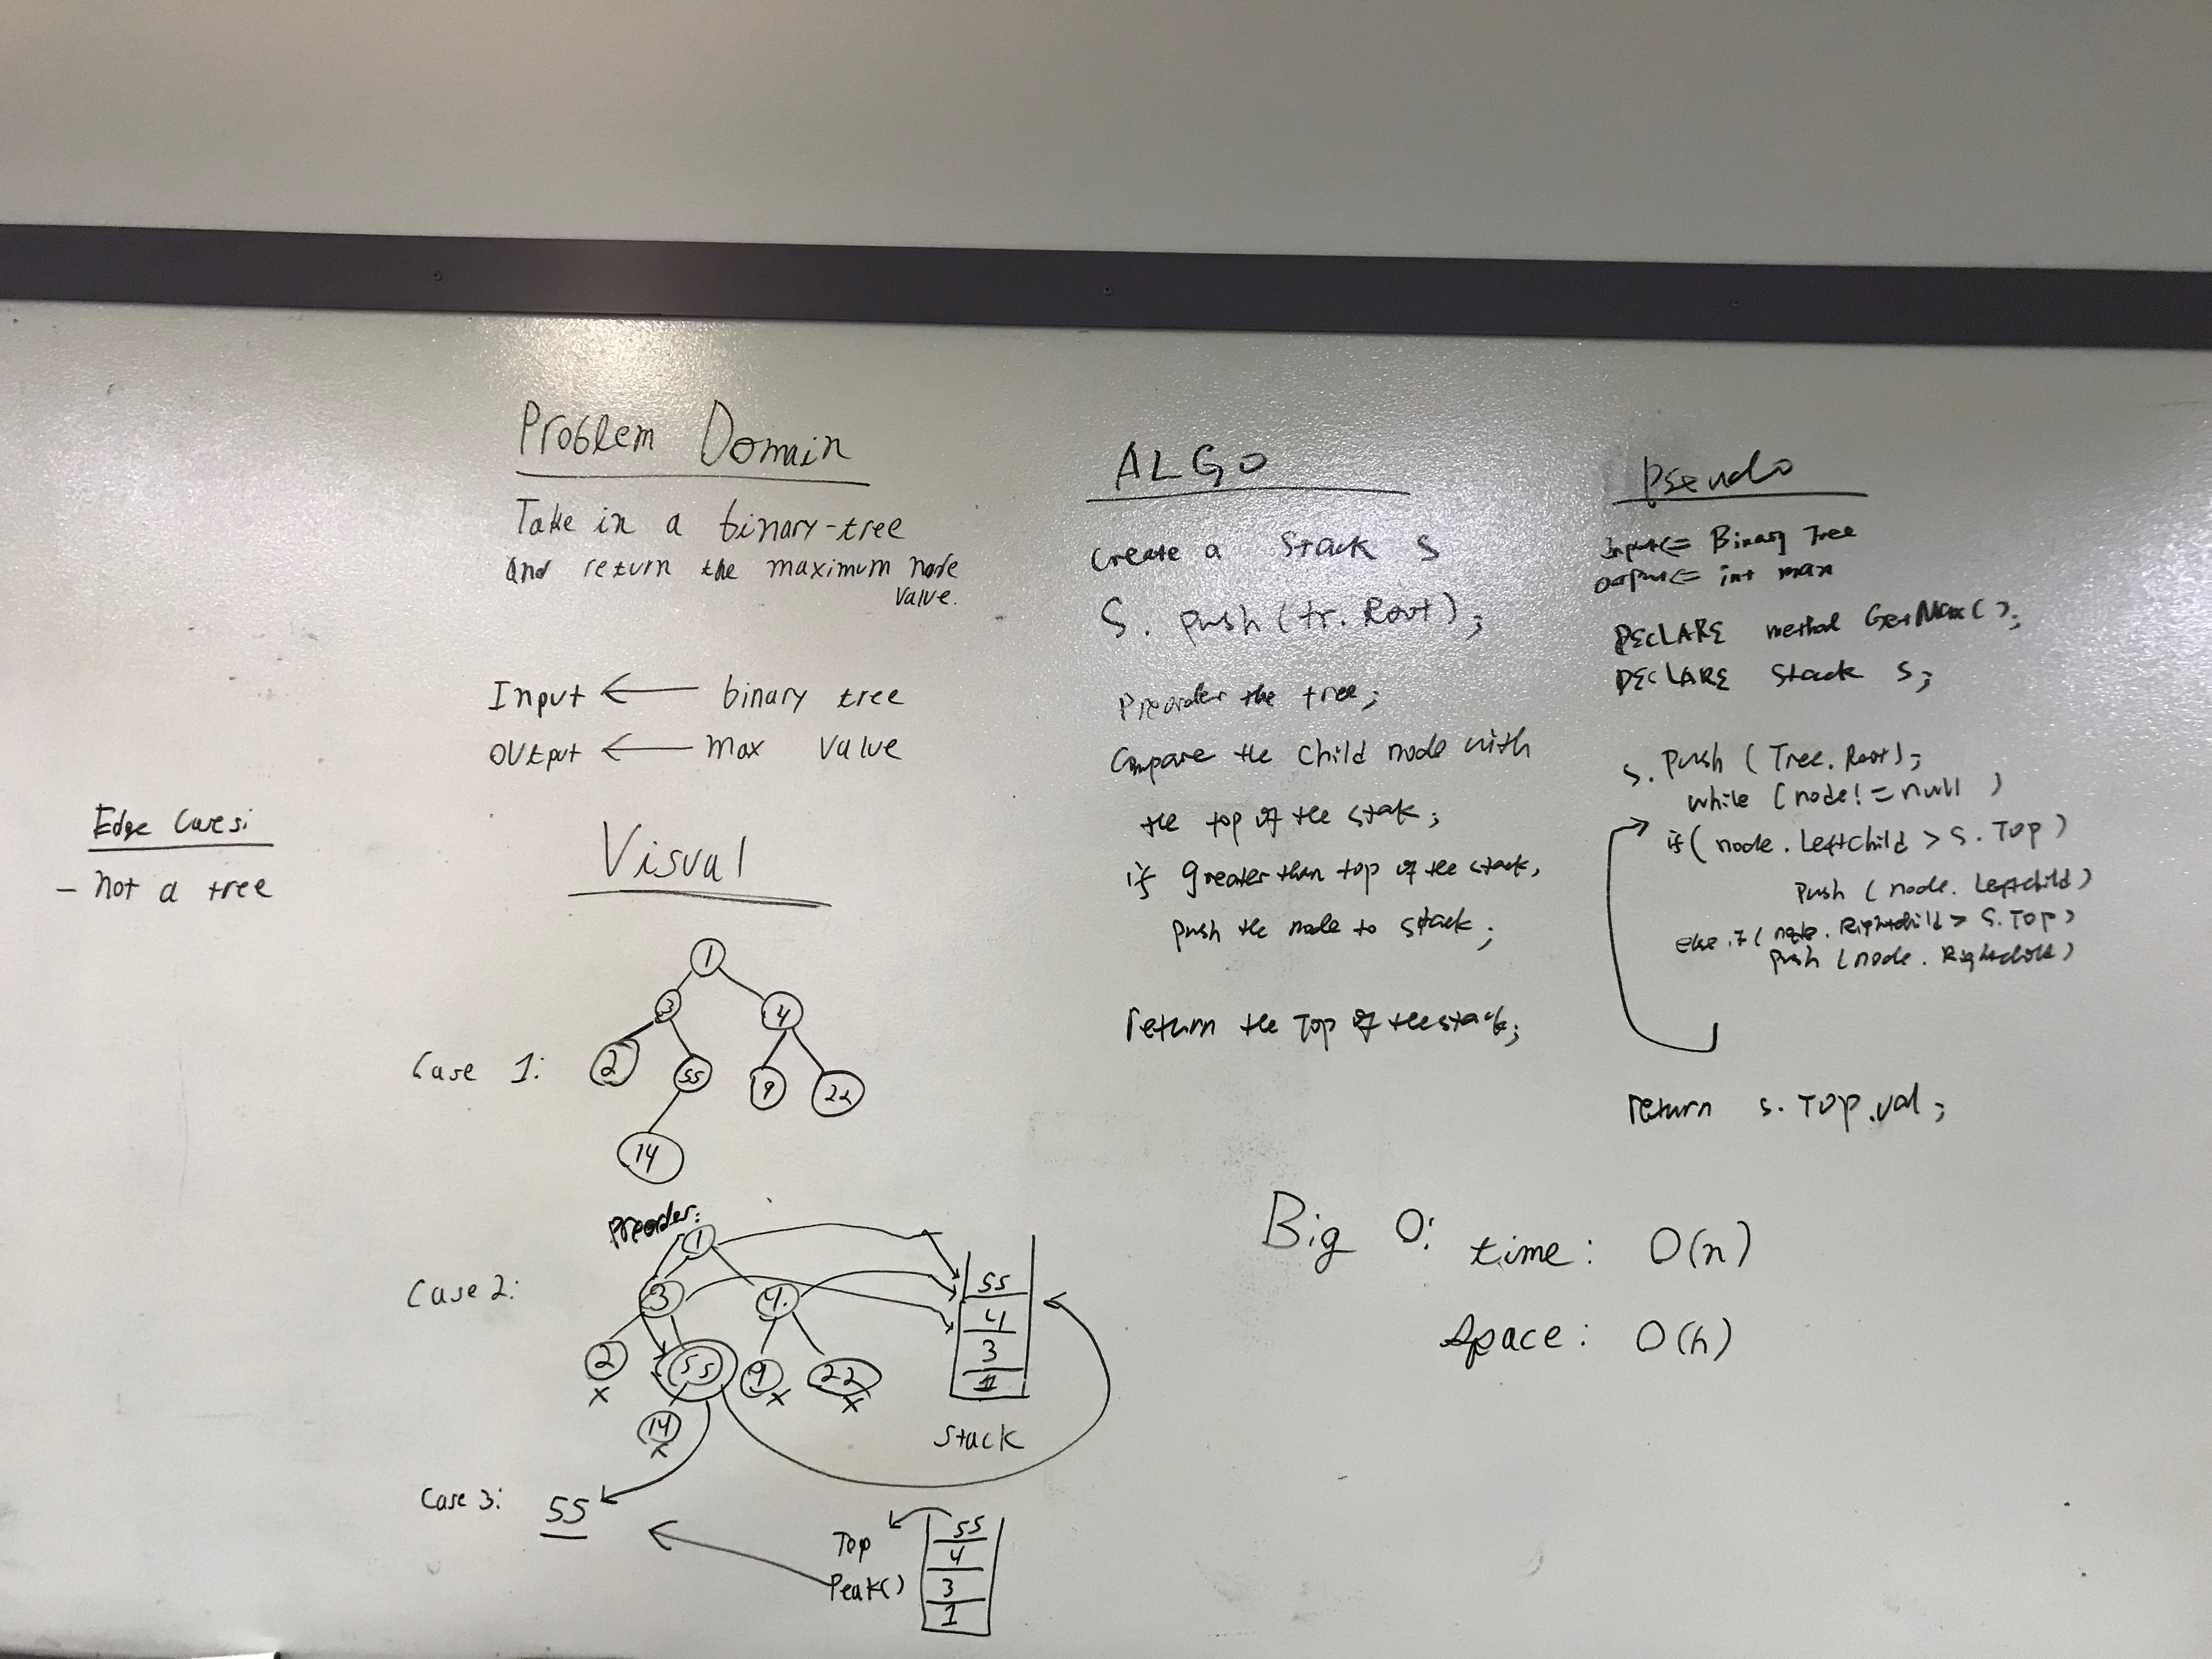 Problem Domain
Take in a binary-tree
and return the maximum node
value.
Input ← binary tree
Output ← max value
Edge Cases:
- not a tree
Visual
Case 1:
1
3 4
2 55 9 22
14
Preorder:
Case 2:
1
3 4
2 55 9 22
x x x
14
x
55
4
3
1
Stack
Case 3: 55
Top
Peak()
55
4
3
1
ALGO
Create a Stack S
S. push (tr. Root);
Preorder the tree;
Compare the child node with
the top of the stak;
if greater than top of the stack,
push the node to stack;
return the Top of the stack;
Pseudo
Input <= Binary Tree
Output <= int max
DECLARE method GetMax();
DECLARE Stack S;
S. Push (Tree. Root);
while (node! = null )
if( node. LeftChild > S. Top )
Push ( node. Leftchild)
else if ( node. Rightchild > S. Top )
push (node. Rightchild)
return s. TOP .val;
Big O: time: O(n)
space: O(h)